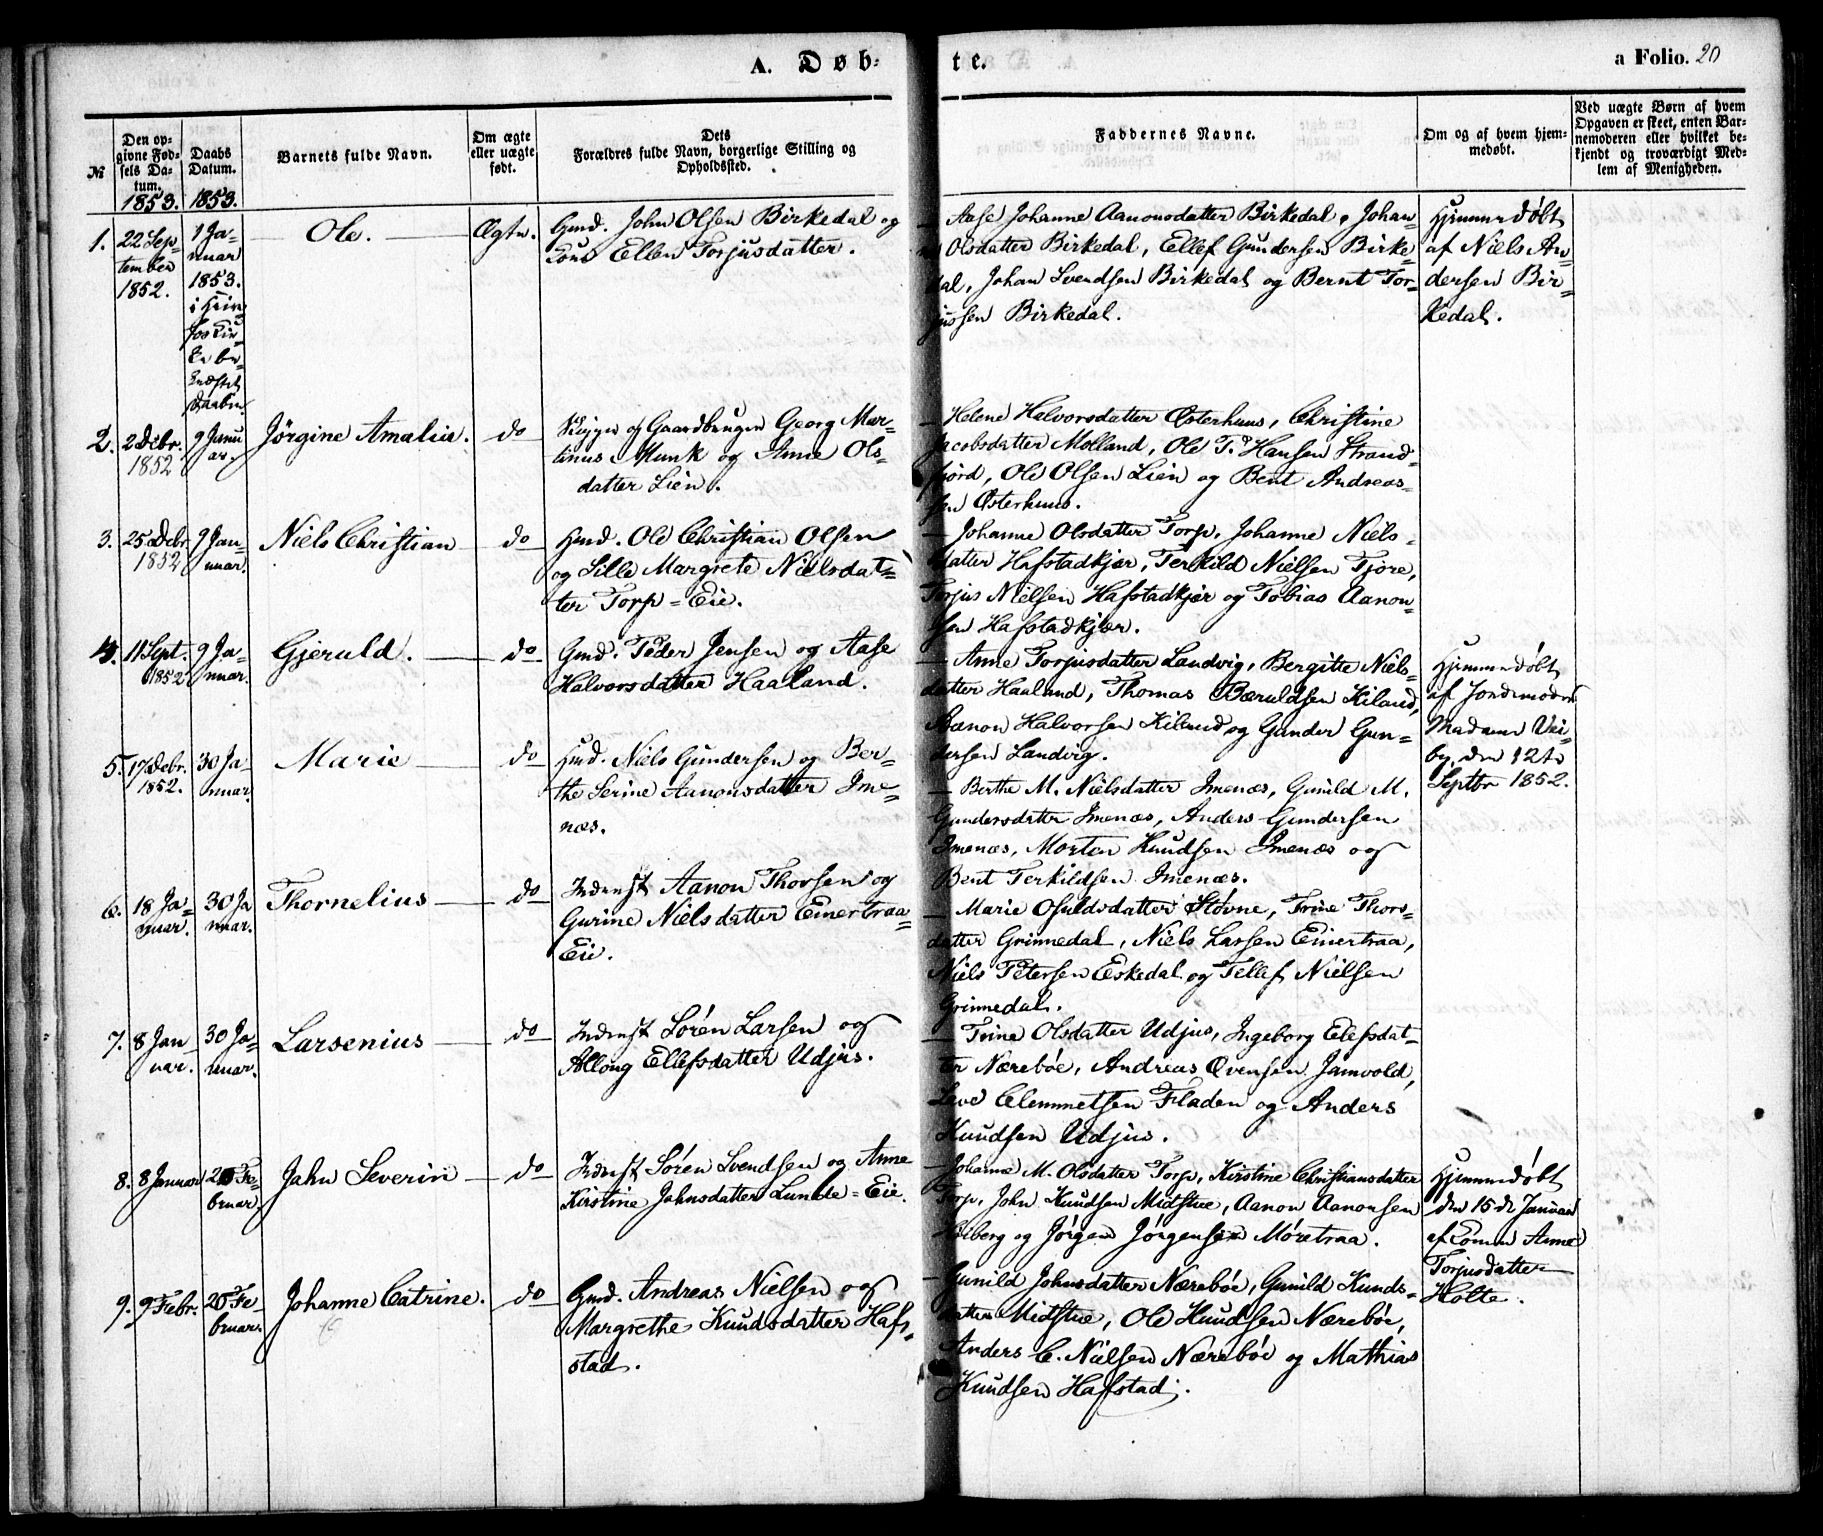 A. Døb-
te.
a Folio. 20
№
Den op-
givne Fød-
sels Da-
tum.
1853.
Daabs
Datum.
1853.
Barnets fulde Navn.
Om ægte
eller uægte
født.
Dets
Forældres fulde Navn, borgerlige Stilling og
Opholdssted.
Faddernes Navne.
Om og af hvem hjem-
medøbt.
Ved uægte Børn af hvem
Opgaven er skeet, enten Bar-
nemoderen eller hvilket be-
kjendt og troværdigt Med-
lem af Menigheden.
1.
22 Sep-
tember
1852.
1 Ja-
nuar
1853.
Ole.
Ægte.
Gmd. John Olsen Birkedal og
Ellen Torjusdatter.
Aase Johanne Aanonsdatter Birkedal, Johan-
Olsdatter Birkedal, Ellef Gundersen Birke-
dal, Johan Svendsen Birkedal og Bernt Tor-
jussen Birkedal.
Hjemmedøbt
af Niels An-
dersen Bir-
kedal.
2.
2 Debr.
1852
9 Janu
ar.
Jørgine Amalie.
do
og Gaardbruger Georg Mar-
tinus Munk og Anne Ols-
datter Lien.
Helene Halvorsdatter Østerhuus, Christine
Jacobsdatter Molland, Ole T. Hansen Strand-
fjord, Ole Olsen Lien og Bent Andreas-
sen Østerhuus.
3.
25 Debr
1852
9 Jan-
nuar.
Niels Christian
do
Hmd. Ole Christian Olsen
og Sille Margrete Nielsdat-
ter Torp-Eie.
Johanne Olsdatter Torp, Johanne Niels-
datter Hafstadkjær, Terkild Nielsen Fjøre,
Torjus Nielsen Hafstadkjær og Tobias Aanon-
sen Hafstadkjær.
4.
11 Sept.
1852
9 Ja-
nuar.
Gjeruld.
do
Gmd. Peder Jensen og Aase
Halvorsdatter Haaland.
Anne Torjusdatter Landvig, Bergitte Niels-
datter Haaland, Thomas Bæruldsen Kiland,
Aanon Halvorsen Kiland og Gunder Gun-
dersen Landvig.
Hjemmedøbt
af Jordemoder
Madame Vei-
by, den 12te
Septbr 1852.
5.
17 Debr.
1852.
30 Ja-
nuar.
Marie
do
Hmd. Niels Gundersen og Ber-
the Serine Aanonsdatter Ime-
næs.
Berthe M. Nielsdatter Imenæs, Gunild M.
Gundersdatter Imenæs, Anders Gundersen
Imenæs, Morten Knudsen Imenæs og
Bent Terkildsen Imenæs.
6.
18 Ja-
nuar.
30 Ja
nuar.
Thornelius
do
Inderst Aanon Thorsen og
Gurine Nielsdatter Emertraa-
Eie.
Marie Osuldsdatter Støvne, Trine Thors-
datter Grinnedal, Niels Larsen Emertraa,
Niels Petersen Eskedal og Tellef Nielsen
Grinnedal.
7.
8 Jan-
uar.
30 Ja-
nuar.
Larsenius
do
Inderst Søren Larsen og
Allong Ellefsdatter Udjus.
Trine Olsdatter Udjus, Ingeborg Elefsdat-
ter Nærebøe, Andreas Ovensen Jamvold,
Leve Clemmetsen Fladen og Anders
Knudsen Udjus.
8.
8 Januar
20 Fe-
bruar.
Jahn Severin
do
Inderst Søren Svendsen og Anne
Kirstine Jahnsdatter Lunde-Eie.
Johanne M. Olsdatter Torp, Kirstine Christiansdatter
Torp, John Knudsen Midstue, Aanon Aanonsen
Høiberg og Jørgen Jørgensen Møretraa.
Hjemmedøbt
den 15de Januar
af Konen Anne
Torjusdatter
Holte.
9.
9 Febr.
20 Fe-
bruar.
Johanne Catrine.
do
Gmd. Andreas Nielsen og
Margrethe Knudsdatter Haf-
stad.
Gunild Johnsdatter Nærebøe, Gunild Knuds-
datter Midstue, Ole Knudsen Nærebøe,
Anders C. Nielsen Nærebøe og Mathias
Knudsen Hafstad.